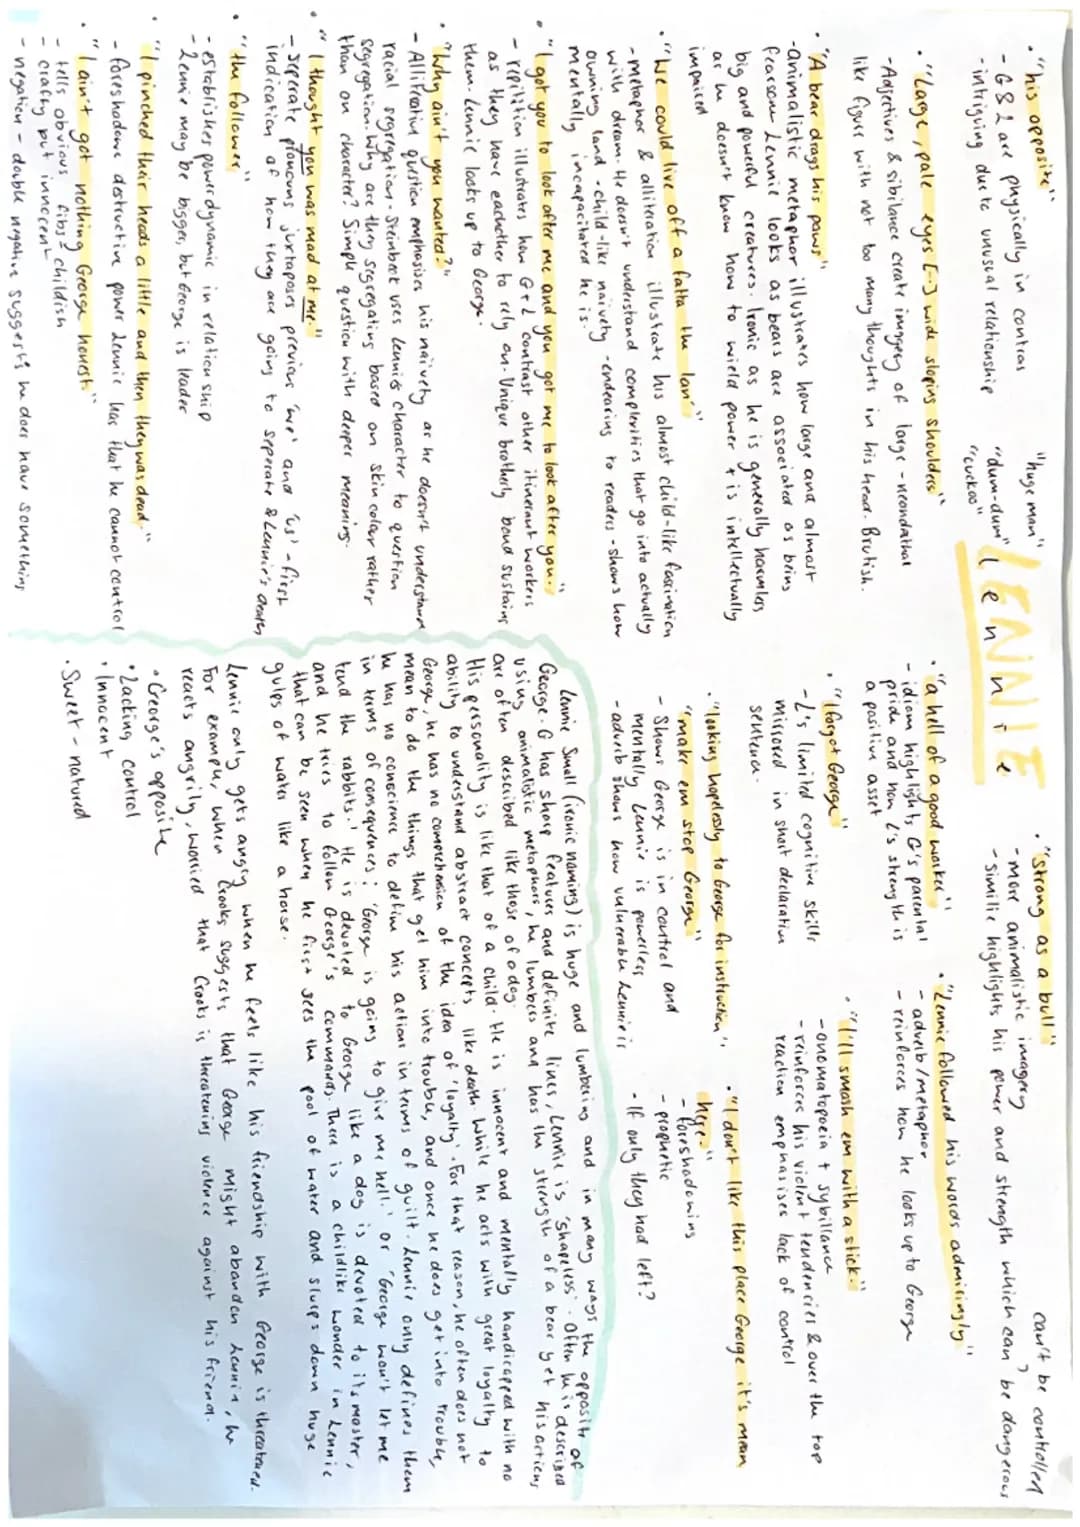 LENNIE
Lennie
"huge man"
"dum-dum"
"cuckoo"
• "his opposite"
- G & L are physically in contras
- intriguing due to unusual relationship
• "Large, pale eyes [--] wide sloping shoulders"
- Adjectives & sibilance create imagery of large - neondathal
like figure with not too many thoughts in his head. Brutish.
• "A bear drags his paws"
- animalistic metaphor illustrates how large and almost
fearsome Lennie looks as bears are associated as being
big and powerful creatures. Ironic as he is generally harmless
as he doesn't know how to wield power & is intellectually
impaired
• "We could live off a fatta the lan'"
- metaphor & alliteration illustrate his almost child-like fascination
with dream. He doesn't understand complexities that go into actually
owning land - child-like naivety - endearing to readers - shows how
mentally incapacitated he is.
• "I got you to look after me and you got me to look after you."
- repitition illustrates how G & L contrast other itinerant workers
as they have eachother to rely on. Unique brotherly bond sustains
them. Lennie looks up to George.
• "Why ain't you wanted?"
- Alliteative question emphasises his naivety as he doesn't understand
racial segregation. Steinbeck uses Lennie's character to question
segregation. Why are they segregating based on skin colour rather
than on character? Simple question with deeper meaning.
• "I thought you was mad at me."
- seperate pronouns juxtaposes previous 'we' and 'us' - first
indication of how they are going to seperate & Lennie's death
• "the follower"
- establishes power dynamic in relationship
- Lennie may be bigger, but George is leader
• "I pinched their heads a little and then they was dead."
- foreshadows destructive power Lennie has that he cannot control
• "I ain't got nothing George honest."
- tells obvious fibs, childish
- crafty but innocent
- negation - double negative suggests he does have something
• "a hell of a good worker"
- idiom highlights G's parental
pride and how L's strength is
a positive asset
• "I forgot George"
- L's limited cognitive skills
mirrored in short declaration
sentence.
• "looking hopelessly to George for instruction",
"make em stop George"
- Shows George is in control and
mentally Lennie is powerless
- adverb shows how vulnerable Lennie is
• "strong as a bull"
- more animalistic imagery
- similie highlights his power and strength which can be dangerous
can't be controlled
• "Lennie followed his words admiringly"
- adverb/metaphor
- reinforces how he looks up to George
• "I'll smash em with a stick."
- onomatopoeia + sybillance
- reinforces his violent tendencies & over the top
reaction emphasises lack of control
• "I don't like this place George it's mean
here."
- foreshadowing
- prophetic
• If only they had left?
Lennie Small (ironic naming) is huge and lumbering and in many ways the opposite of
George. G has sharp features and definite lines, Lennie is 'shapeless'. Often he is described
using animalistic metaphors, he lumbers and has the strength of a bear yet his actions
are often described like those of a dog.
His personality is like that of a child. He is innocent and mentally handicapped with no
ability to understand abstract concepts like death. While he acts with great loyalty to
George, he has no comprehension of the idea of 'loyalty'. For that reason, he often does not
mean to do the things that get him into trouble, and once he does get into trouble,
he has no conscience to define his actions in terms of guilt. Lennie only defines them
in terms of consequences: 'George is going to give me hell.' or 'George won't let me
tend the rabbits.' He is devoted to George like a dog is devoted to its master,
and he tries to follow George's commands. There is a childlike wonder in Lennie
that can be seen when he first sees the pool of water and slurps down huge
gulps of water like a horse.
Lennie only gets angry when he feels like his friendship with George is threatened.
For example, when Crooks suggests that George might abandon Lennie, he
reacts angrily, worried that Crooks is threatening violence against his friend.
• George's opposite
• Lacking control
• Innocent
• Sweet-natured